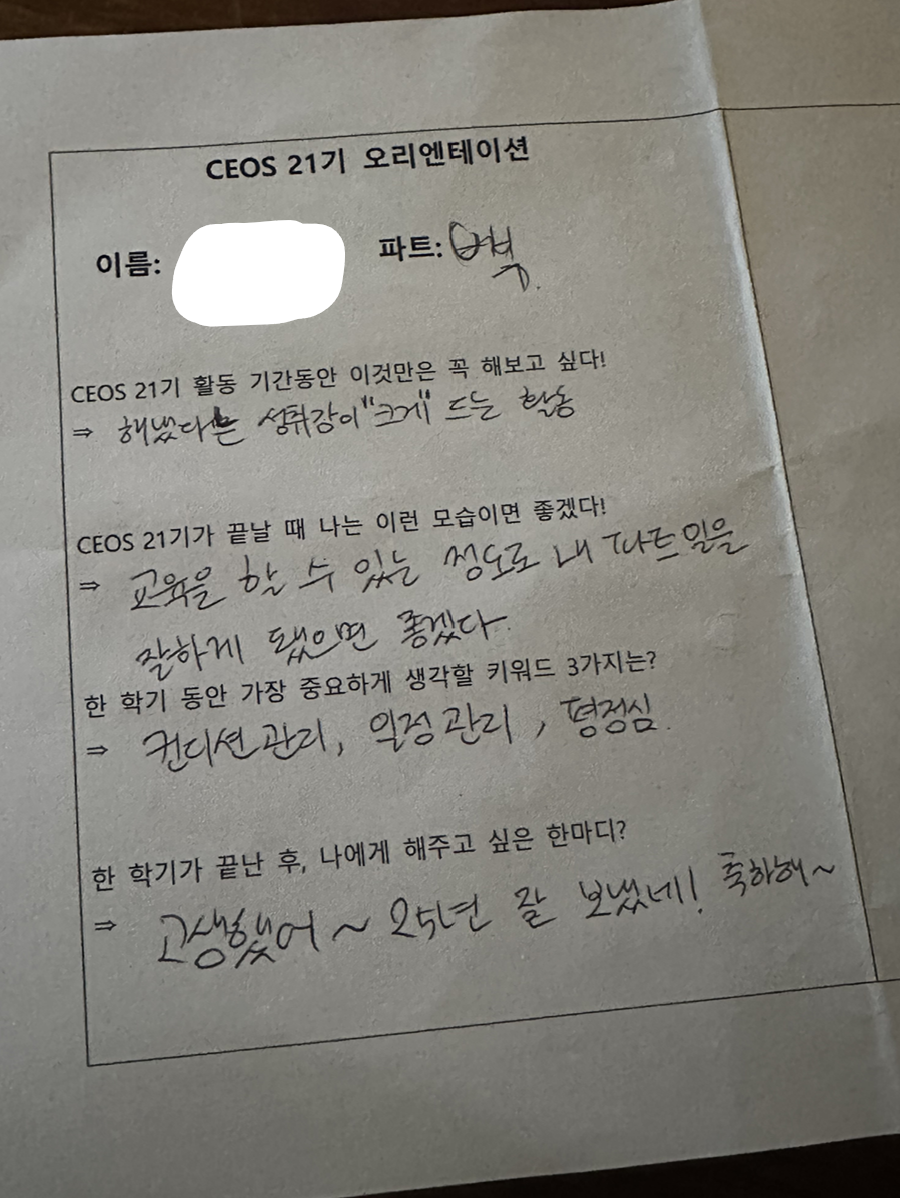 CEOS 21기 오리엔테이션
이름: 파트:
CEOS 21기 활동 기간동안 이것만은 꼭 해보고 싶다!
⇒ 해냈다는 성취감이 "크게" 드는 활동
CEOS 21기가 끝날 때 나는 이런 모습이면 좋겠다!
⇒ 교육을 할 수 있는 정도로 내 파트 일을
잘하게 됐으면 좋겠다.
한 학기 동안 가장 중요하게 생각할 키워드 3가지는?
⇒ 컨디션 관리, 일정 관리, 평정심.
한 학기가 끝난 후, 나에게 해주고 싶은 한마디?
⇒ 고생했어~ 25년 잘 보냈네! 축하해~